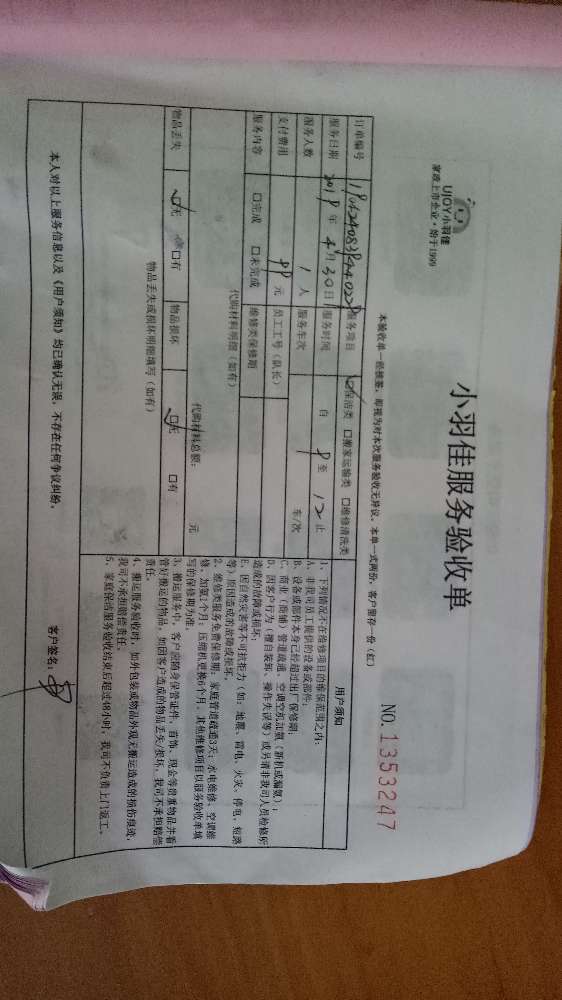 UJOY小羽佳
家政上市企业·始于1999
小羽佳服务验收单
NO.1353247
本验收单一经核签，即视为对本次服务验收无异议。本单一式两份，客户留存一份（红）
订单编号 服务项目 ☑保洁类 口搬家运输类 口维修清洗类
服务日期 2019年4月30日 服务时间 自 8 至 12 止
服务人数 1人 服务车次 车/次
支付费用 元 员工工号（队长）
服务内容 口完成 口未完成 维修类保修期
代购材料明细（如有）
代购材料总额： 元
物品丢失 ☑无 口有 物品损坏 ☑无 口有
物品丢失或损坏明细填写（如有）
用户须知
1、下列情况不在维修项目的维保范围之内：
A、非我司员工提供的设备或部件；
B、设备或部件本身已经超过出厂保修期；
C、商业（商铺）管道疏通、空调空机加氨（新机或漏氨）；
D、因客户行为（擅自装卸、操作失误等）或另请非我司人员检修所
造成的故障或损坏。
E、因自然灾害等不可抗拒力（如：地震、雷电、火灾、停电、短路
等）原因造成的故障或损坏。
2、维修类服务免费保修期：家庭管道疏通3天；水电维修、空调维
修、加氨2个月；压缩机更换6个月，其他维修项目以服务验收单填
写的保修期为准。
3、搬运服务中，客户应随身保管证件、首饰、现金等贵重物品并看
管好搬运的物品，如因客户造成的物品丢失/损坏，我司不承担赔偿
责任。
4、搬运服务验收时，如外包装或物品外观无搬运造成的损伤痕迹，
我司不承担赔偿责任。
5、家庭保洁服务验收结束后超过48小时，我司不负责上门返工。
本人对以上服务信息以及《用户须知》均已确认无误，不存在任何争议纠纷。
客户签名：